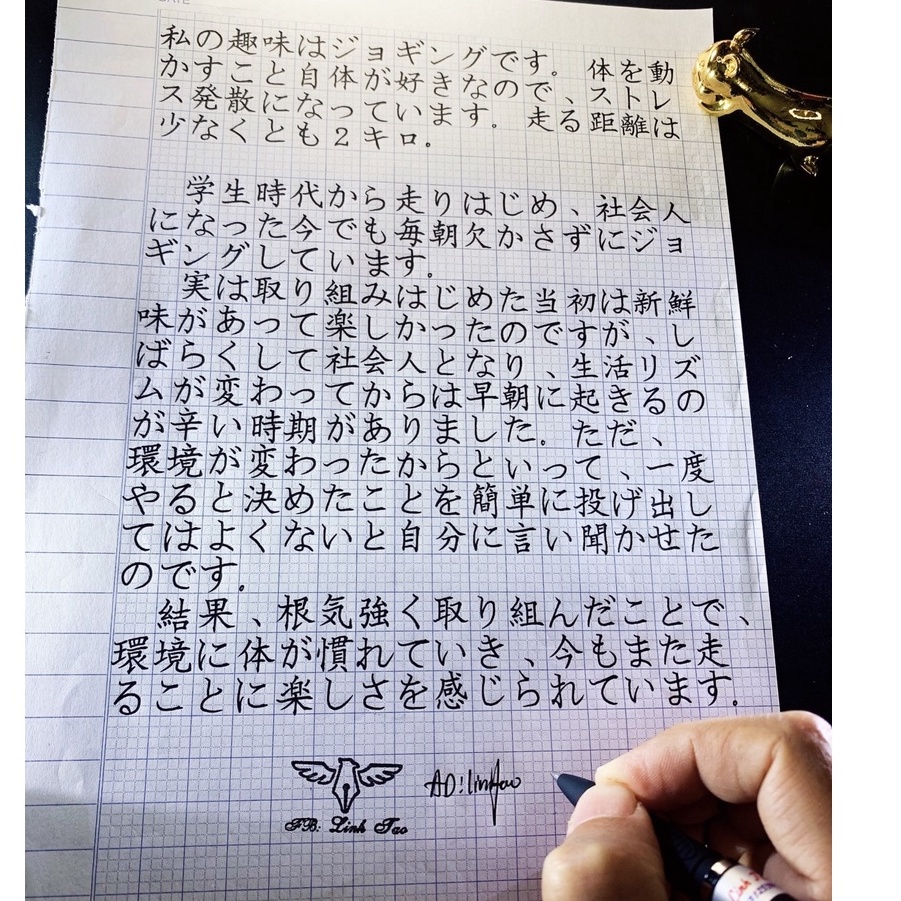 DATE
私の趣味はジョギングです。体を動
かすこと自体が好きなので、ストレ
ス発散になっています。走る距離は
少なくとも2キロ.
学生時代から走りはじめ、社会人
になった今でも毎朝欠かさずにジョ
ギングしています.
実は取り組みはじめた当初は新鮮
味があって楽しかったのですが、し
ばらくして社会人となり、生活リズ
ムが変わってからは早朝に起きるの
が辛い時期がありました.ただ、
環境が変わったからといって、一度
やると決めたことを簡単に投げ出し
てはよくないと自分に言い聞かせた
のです.
結果、根気強く取り組んだことで、
環境に体が慣れていき、今もまた走
ることに楽しさを感じられています.
FB: Linh Tao